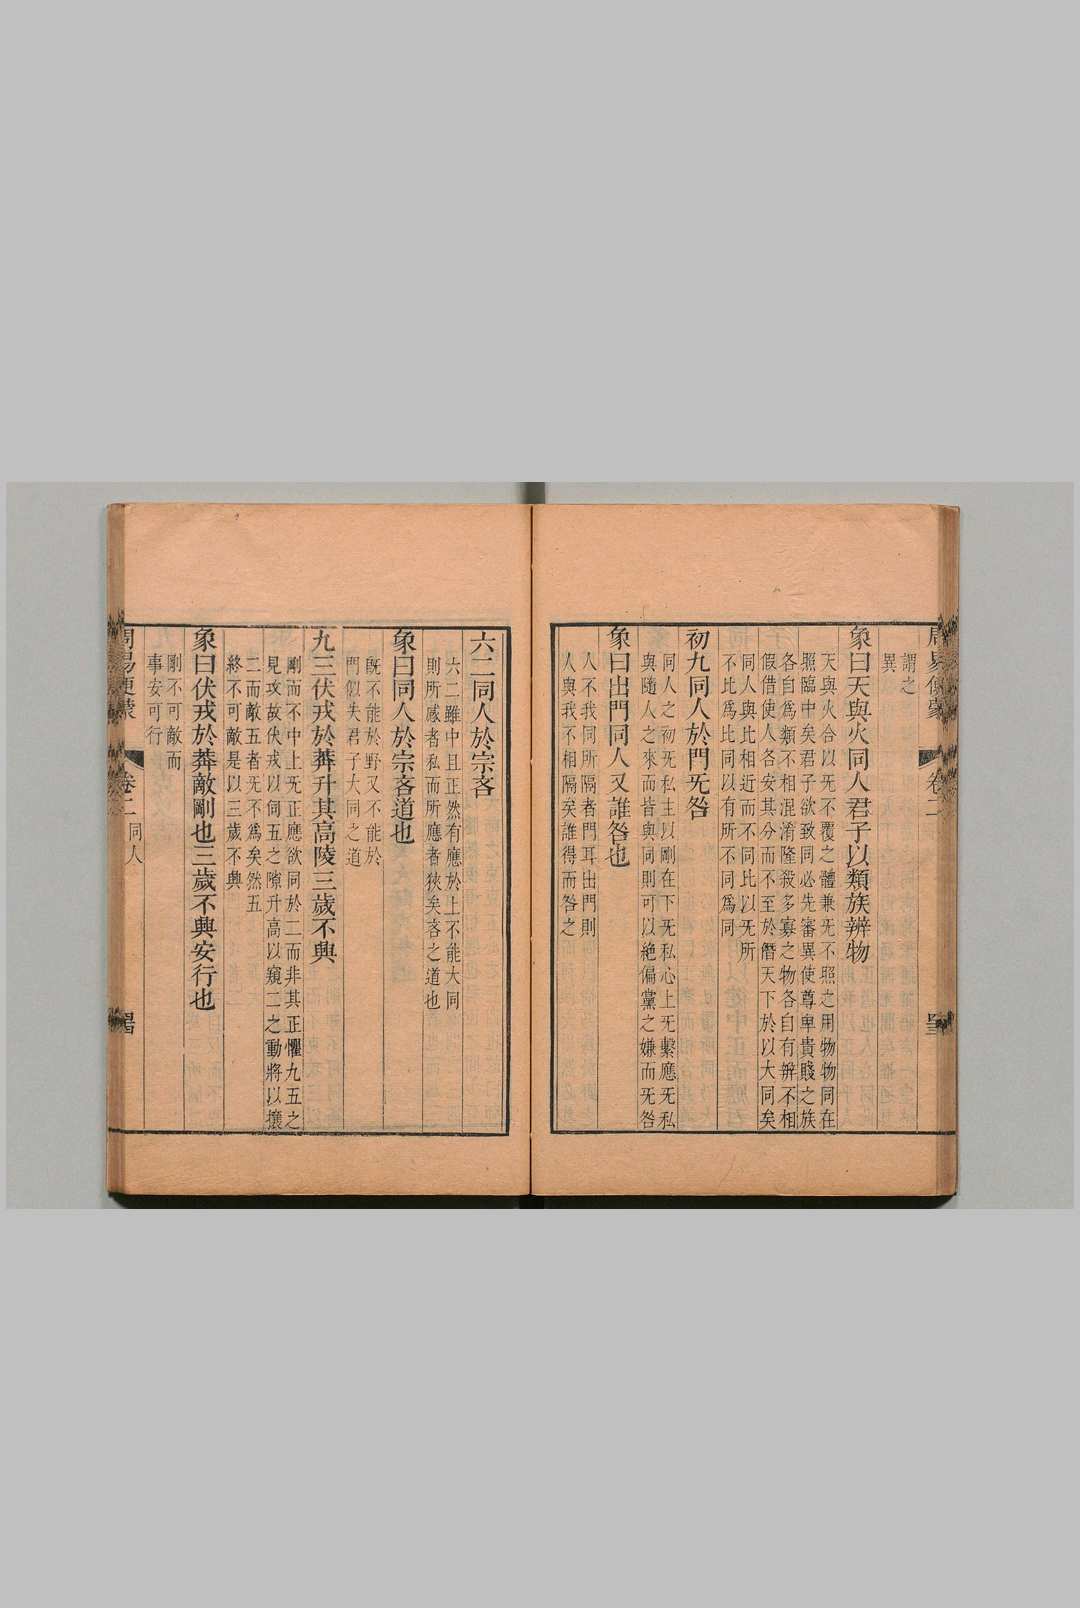 謂之
異
象曰天與火同人君子以類族辨物
天與火合以旡不覆之體兼旡不照之用物物同在
照臨中矣君子欲致同必先審異使尊卑貴賤之族
各自爲類不相混淆隆殺多寡之物各自有辨不相
假借使人各安其分而不至於僭天下於以大同矣
同人與比相近而不同比以旡所
不比爲比同以有所不同爲同
初九同人於門旡咎
同人之初旡私主以剛在下旡私心上旡繫應旡私
與隨人之來而皆與同則可以絶偏黨之嫌而旡咎
象曰出門同人又誰咎也
人不我同所隔者門耳出門則
人與我不相隔矣誰得而咎之
六二同人於宗吝
六二雖中且正然有應於上不能大同
則所感者私而所應者狹矣吝之道也
象曰同人於宗吝道也
旣不能於野又不能於
門似失君子大同之道
九三伏戎於莽升其高陵三歲不興
剛而不中上旡正應欲同於二而非其正懼九五之
見攻故伏戎以伺五之隙升高以窺二之動將以攘
二而敵五者旡不爲矣然五
終不可敵是以三歲不興
象曰伏戎於莽敵剛也三歲不興安行也
剛不可敵而
事安可行
周易便蒙
卷二
同人